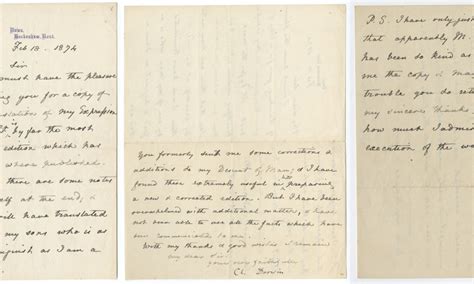 Down,
Beckenham, Kent.
Feb 18 - 1874
Sir
must have the pleasure
ing you for a copy of
nslation of my Expression
by far the most
edition which has
been published.
there are some notes
elf at the end, &
will have translated
my sons who is as
inguish as I am a
You formerly sent me some corrections &
additions to my Descent of Man, & I have
found these extremely useful in preparing
a new & corrected edition. But I have been
overwhelmed with additional matter, & have
not been able to use all the facts which have
been communicated to me.
With my thanks & good wishes I remain
my dear Sir
yours very faithfully
Ch. Darwin
P.S. I have only just
that apparently Mr.
has been so kind as
me the copy & may
trouble you to ret
my sincere thanks,
how much I adm
execution of the wo